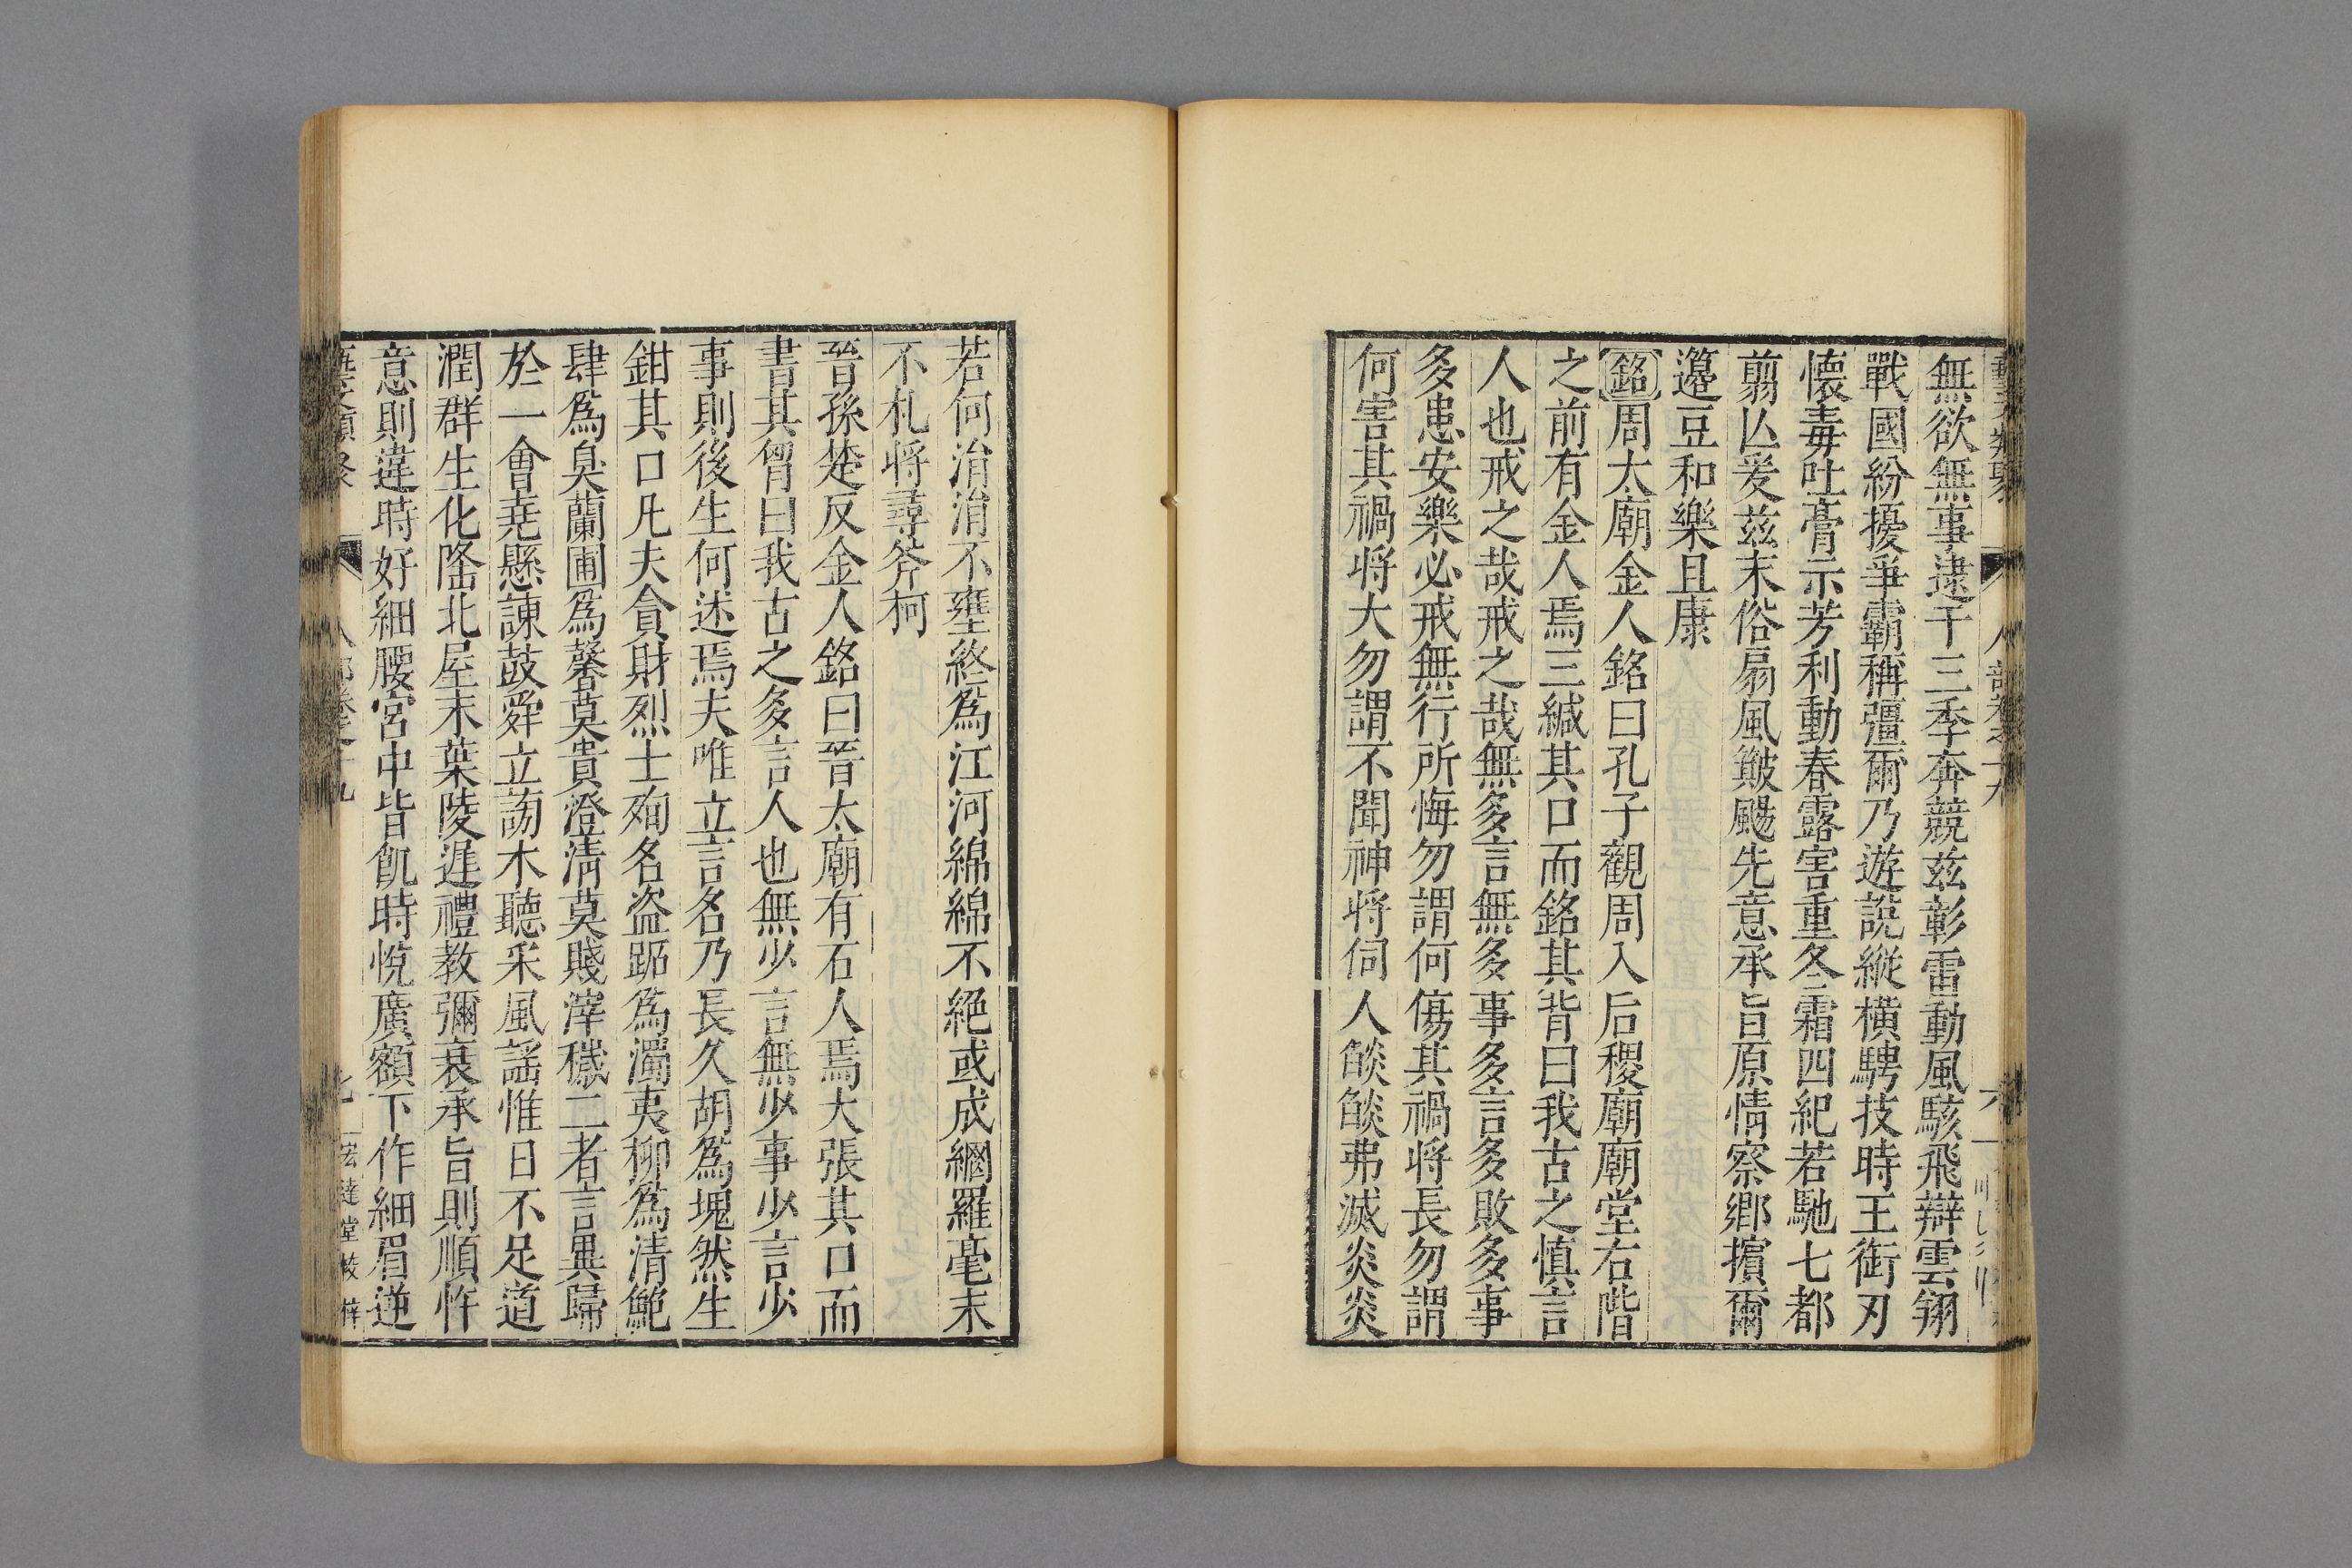 無欲無事逮于三季奔競茲彰雷動風駭飛辯雲翎
戰國紛擾爭霸稱彊爾乃遊說縱橫騁技時王銜刃
懷毒吐膏示芳利動春露害重冬霜四紀若馳七都
翦仏爰茲末俗扇風簸颺先意承旨原情察鄉擯爾
籩豆和樂且康
銘周太廟金人銘曰孔子觀周入后稷廟廟堂右階
之前有金人焉三緘其口而銘其背曰我古之慎言
人也戒之哉戒之哉無多言無多事多言多敗多事
多患安樂必戒無行所悔勿謂何傷其禍將長勿謂
何害其禍將大勿謂不聞神將伺人燄燄弗滅炎炎
若何涓涓不壅終為江河綿綿不絕或成網羅毫末
不札將尋斧柯
晉孫楚反金人銘曰晉太廟有石人焉大張其口而
書其胷曰我古之多言人也無少言無少事少言少
事則後生何述焉夫唯立言名乃長久胡為塊然生
鉗其口凡夫貪財烈士殉名盜跖為濁夷柳為清鮑
肆為臭蘭圃為馨莫貴澄清莫賤滓穢二者言異歸
於一會堯懸諫鼓舜立謗木聽采風謠惟日不足道
潤群生化隆北屋末葉陵遲禮教彌衰承旨則順忤
意則違時好細腰宮中皆飢時悅廣額下作細眉逆